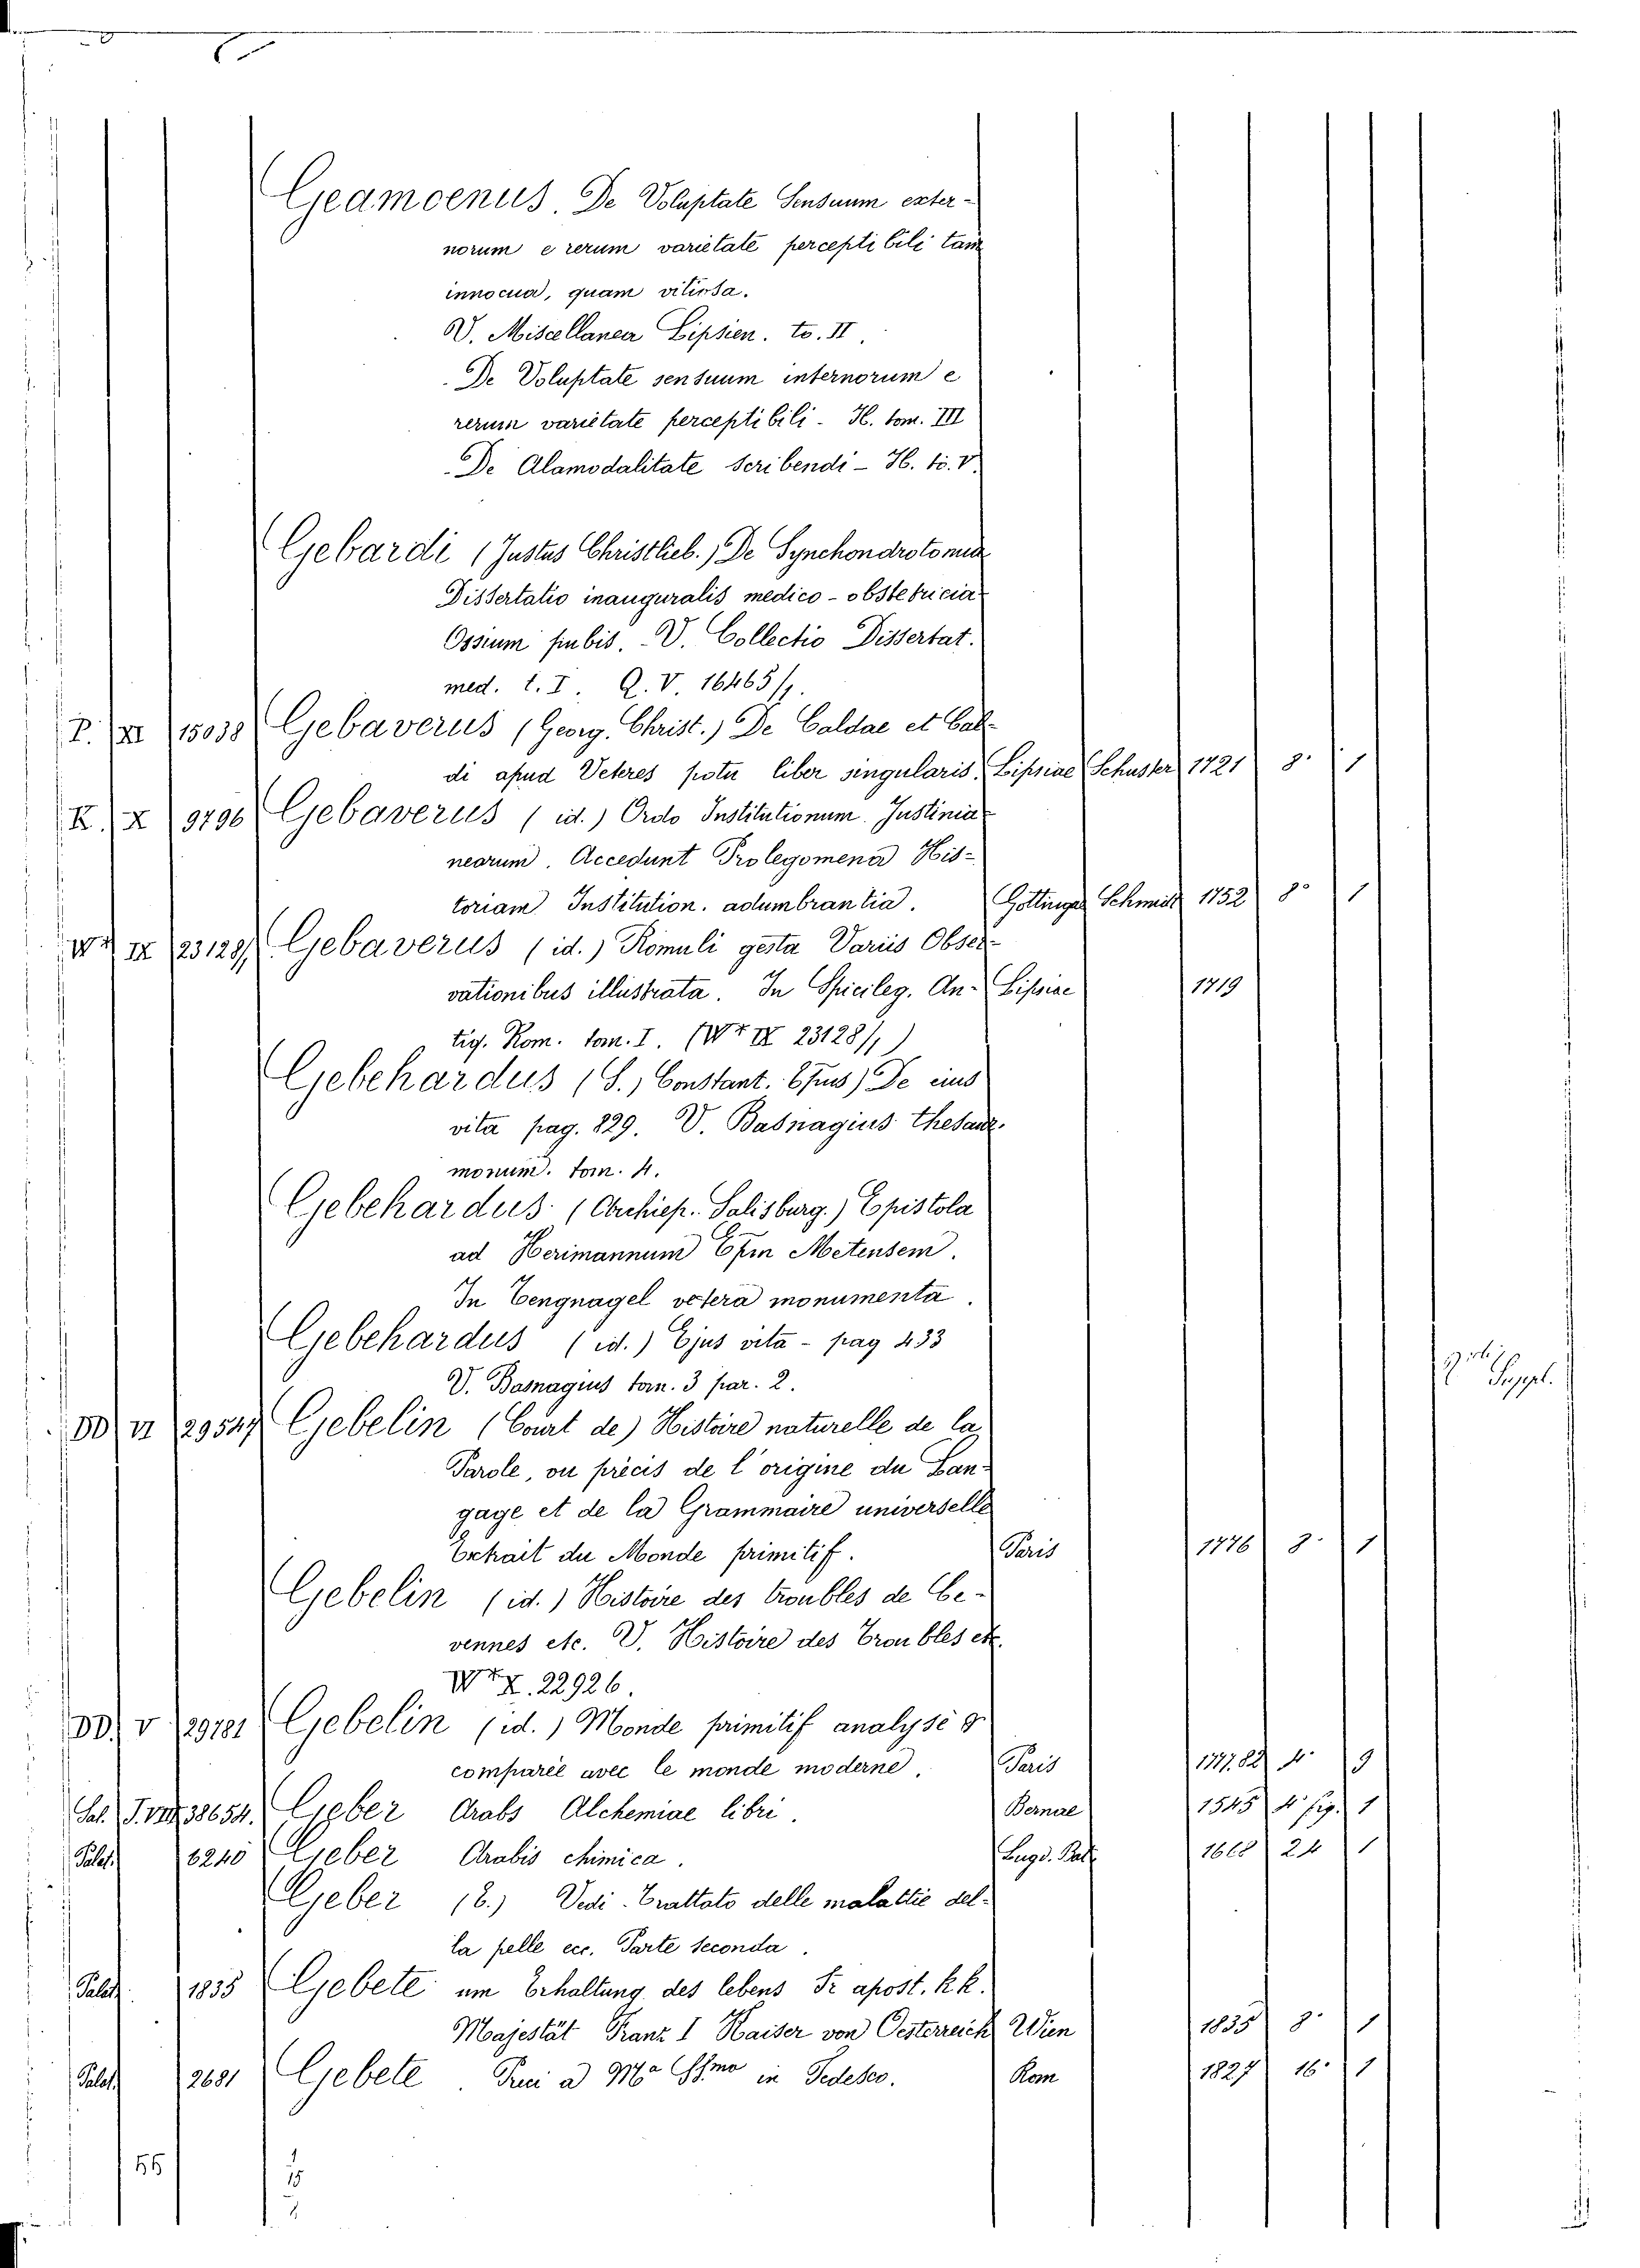 Geamoenus. De Voluptate Sensuum exter-
norum e rerum varietate perceptibili tam
innocua, quam vitiosa.
V. Miscellanea Lipsien. to. II.
De Voluptate sensuum internorum e
rerum varietate perceptibili - H. tom. III
De Alamodalitate scribendi - H. to. V.
Gebardi (Justus Christlieb.) De Synchondrotomia
Dissertatio inauguralis medico-obstetricia
Ossium pubis. - V. Collectio Dissertat.
med. t. I. Q. V 16465/1.
P. XI 15038 Gebaverus (Georg. Christ.) De Caldae et Cal-
di apud Veteres potu liber singularis. Lipsiae Schuster 1721 8. 1
K. X 9796 Gebaverus (id.) Ordo Institutionum Justinia
neorum. Accedunt Prolegomena His-
toriam Institution. adumbrantia. Gottingae Schmidt 1752 8° 1
W+ IX 23128/1 Gebaverus (id.) Romuli gesta Variis Obser-
vationibus illustrata. In Spicileg. An- Lipsiae 1719
tig. Rom. tom. I. (W+ IX 23128/1)
Gebehardus (S., Constant. Epus) De eius
vita pag. 829. V. Basnagius thesaur.
monum. tom. 4.
Gebehardus (Archiep. Salisburg.) Epistola
ad Herimannum Epm Metensem.
In Tengnagel vetera monumenta.
Gebehardus (id.) Ejus vita - pag 433
V. Basnagius tom. 3 par. 2.
Suppl.
DD VI 29547 Gebelin (Court de) Histoire naturelle de la
Parole, ou précis de l'origine du Lan-
gage et de la Grammaire universelle
Extrait du Monde primitif. Paris 1776 8. 1
Gebelin (id.) Histoire des troubles de Ce-
vennes etc. V. Histoire des Troubles etc.
W+ X. 22926.
DD. V 29781 Gebelin (id.) Monde primitif analysé &
comparèe avec le monde moderne. Paris 1777.82 4. 9
Sal. J. VIII 38654. Geber Arabs Alchemiae libri. Bernae 1545 4° fig. 1
Palat. 6240 Geber Arabis chimica. Lugd. Bat. 1668 24 1
Geber (B.) Vedi. Trattato delle malattie del-
la pelle ecc. Parte seconda.
Palat. 1835 Gebete um Erhaltung des lebens Sr apost. kk.
Majestät Franz I Kaiser von Oesterreich Wien 1835 8. 1
Palat. 2681 Gebete. Preci a Ma SSma in Tedesco. Rom 1827 16. 1
55
15